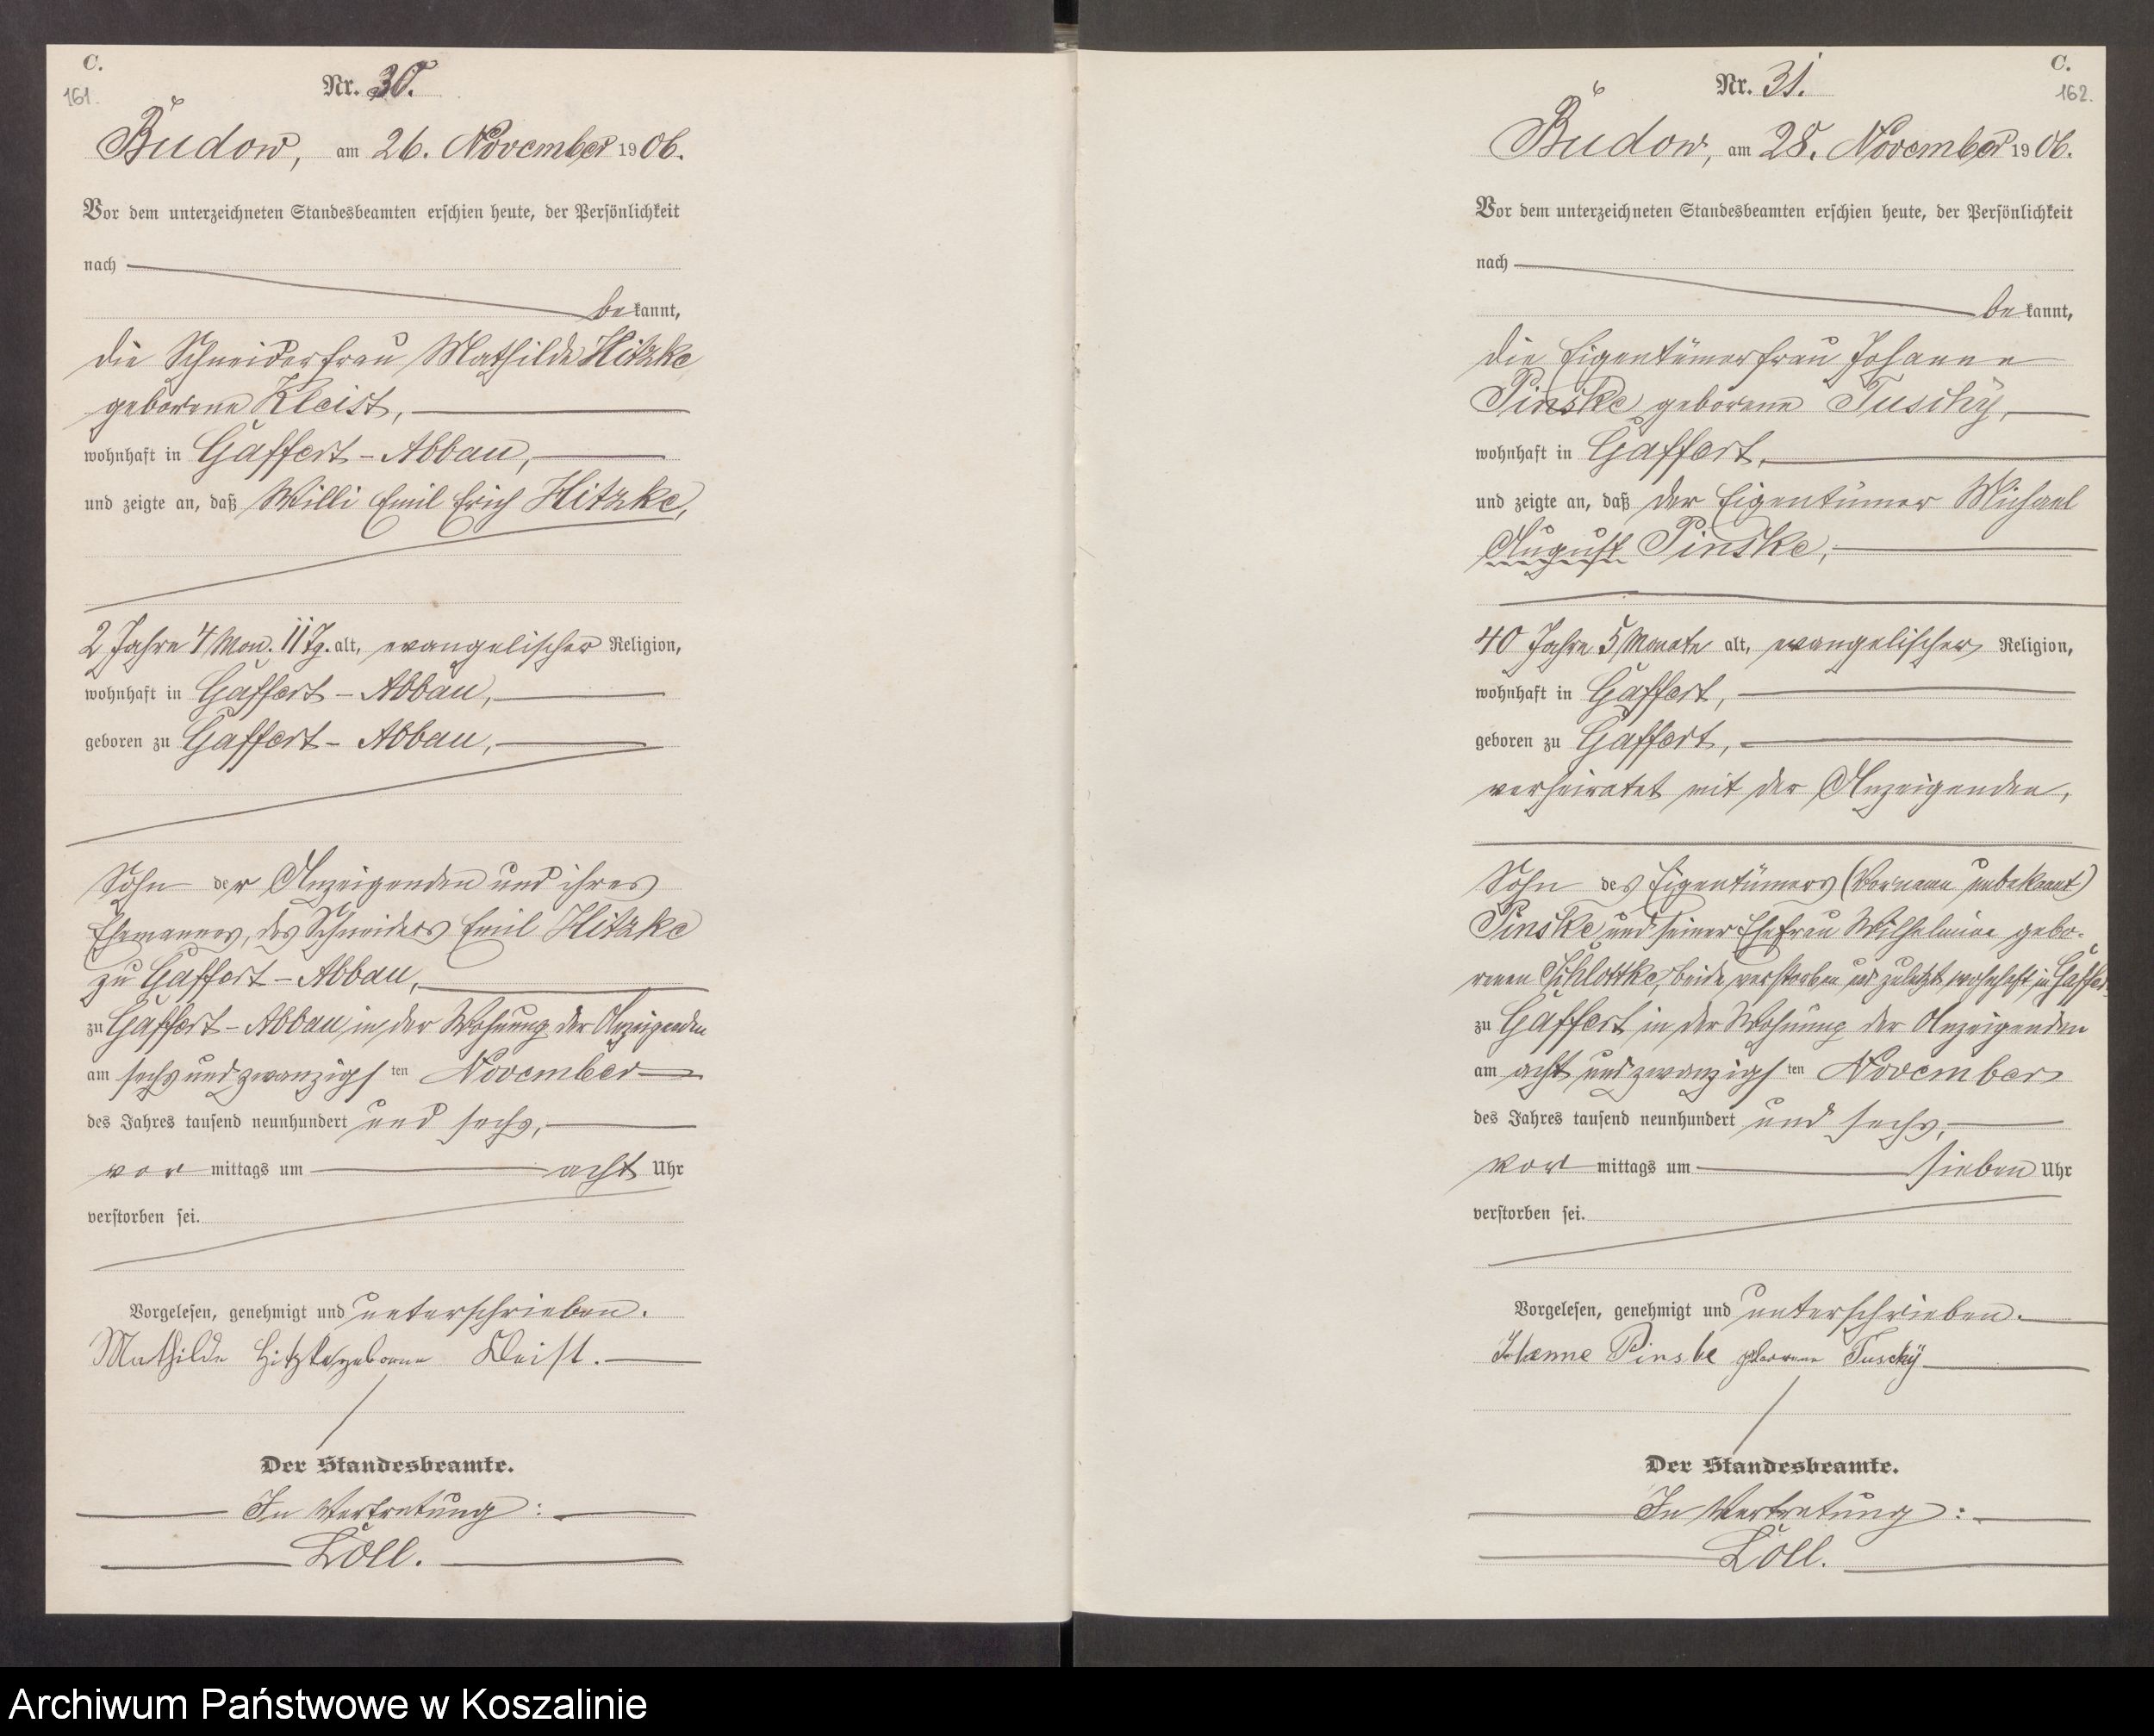 C.
161.
Nr. 30.
Budow, am 26. November 1906.
Vor dem unterzeichneten Standesbeamten erschien heute, der Persönlichkeit
nach
bekannt,
die Schneiderfrau Mathilde Hitzke
geborene Kleist,
wohnhaft in Gaffert-Abbau,
und zeigte an, daß Willi Emil Erich Hitzke,
2 Jahre 4 Mon. 11 Tg. alt, evangelischer Religion,
wohnhaft in Gaffert-Abbau,
geboren zu Gaffert-Abbau,
Sohn der Anzeigenden und ihres
Ehemannes, des Schneiders Emil Hitzke
zu Gaffert-Abbau,
zu Gaffert-Abbau in der Wohnung der Anzeigenden
am sechsundzwanzigsten November
des Jahres tausend neunhundert und sechs,
vor mittags um acht Uhr
verstorben sei.
Vorgelesen, genehmigt und unterschrieben.
Mathilde Hitzke geborene Kleist.
Der Standesbeamte.
In Vertretung:
Löll.
C.
162.
Nr. 31.
Budow, am 28. November 1906.
Vor dem unterzeichneten Standesbeamten erschien heute, der Persönlichkeit
nach
bekannt,
die Eigentümerfrau Johanne
Pinske geborene Tuschy,
wohnhaft in Gaffert,
und zeigte an, daß der Eigentümer Michael
August Pinske,
40 Jahre 5 Monate alt, evangelischer Religion,
wohnhaft in Gaffert,
geboren zu Gaffert,
verheiratet mit der Anzeigenden,
Sohn des Eigentümers (Vorname unbekannt)
Pinske und seiner Ehefrau Wilhelmine gebo-
renen Schlottke, beide verstorben und zuletzt wohnhaft in Gaffert
zu Gaffert in der Wohnung der Anzeigenden
am acht und zwanzigsten November
des Jahres tausend neunhundert und sechs,
vor mittags um sieben Uhr
verstorben sei.
Vorgelesen, genehmigt und unterschrieben.
Pinske geborene Tuschy
Der Standesbeamte.
In Vertretung:
Löll.
Archiwum Państwowe w Koszalinie